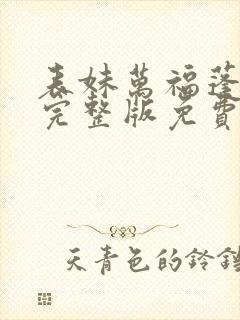 表妹萬福蓬
完整版免費
天青色的鈴鐺